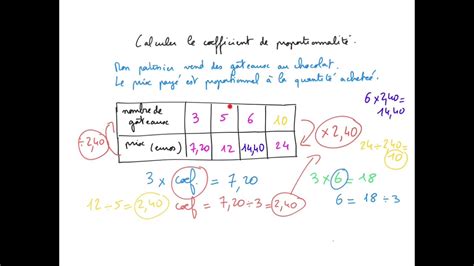 Calculer le coefficient de proportionnalité.
Mon patissier vend des gâteaux au chocolat.
Le prix payé est proportionnel à la quantité achetée.
6 x 2,40 =
14,40
nombre de gâteaux 3 5 6 10
prix (euros) 7,20 12 14,40 24
÷ 2,40
x 2,40
24 ÷ 2,40 =
10
3 x coef = 7,20
3 x 6 = 18
12 ÷ 5 = 2,40
coef = 7,20 ÷ 3 = 2,40
6 = 18 ÷ 3